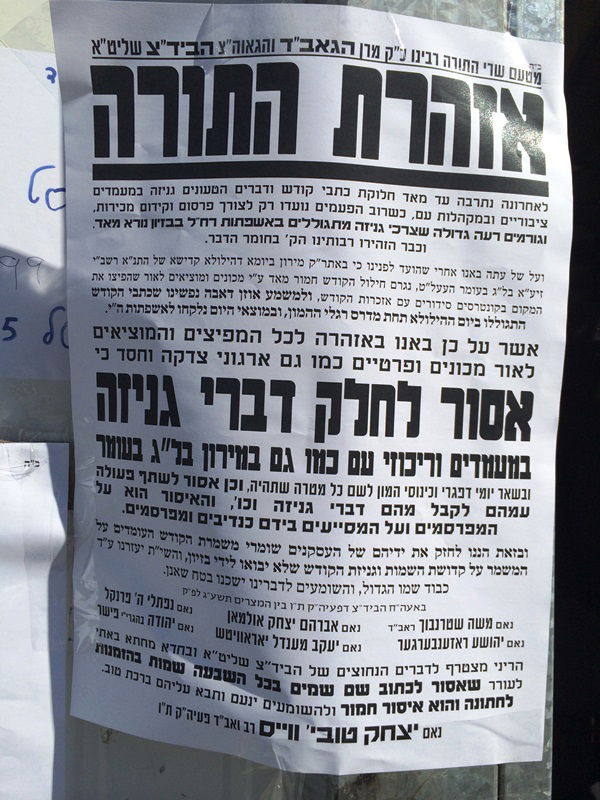 ב"ה
מטעם שרי התורה רבינו ע"ק מרן הגאב"ד והגאוה"צ הביד"צ שליט"א
אזהרת התורה
לאחרונה נתרבה עד מאד חלוקת כתבי קודש ודברים הטעונים גניזה במעמדים
ציבוריים ובמקהלות עם, כשרוב הפעמים נועדו רק לצורך פרסום וקידום מכירות,
וגורמים רעה גדולה שצרכי גניזה מתגוללים באשפתות רח"ל בבזיון נורא מאד.
וכבר הזהירו רבותינו הק' בחומר הדבר.
ועל של עתה באנו אחרי שהועד לפנינו כי באתר"ק מירון ביומא דהילולא קדישא של התנ"א רשב"י
זיע"א בל"ג בעומר העעל"ט, נגרם חילול הקודש חמור מאד ע"י מכונים ומוציאים לאור שהפיצו את
המקום בקונטרסים סידורים עם אזכרות הקודש, ולמשמע אוזן דאבה נפשינו שכתבי הקודש
התגוללו ביום ההילולא תחת מדרס רגלי ההמון, ובמוצאי היום נלקחו לאשפתות ה"י.
אשר על כן באנו באזהרה לכל המפיצים והמוציאים
לאור מכונים ופרטיים כמו גם ארגוני צדקה וחסד כי
אסור לחלק דברי גניזה
במעמדים וריכוזי עם כמו גם במירון בל"ג בעומר
ובשאר יומי דפגרי וכינוסי המון לשם כל מטרה שתהיה, וכן אסור לשתף פעולה
עמהם לקבל מהם דברי גניזה וכו', והאיסור הוא על
המפרסמים ועל המסייעים בידם כנדיבים ומפרסמים.
ובזאת הננו לחזק את ידיהם של העסקנים שומרי משמרת הקודש העומדים על
המשמר על קדושת השמות וגניזת הקודש שלא יבואו לידי בזיון, והשי"ת יעזרנו ע"ד
כבוד שמו הגדול, והשומעים לדברינו ישכנו בטח שאנן.
באעה"ח הביד"צ דפעיה"ק ת"ו בין המצרים תשע"ג לפ"ק
נאם משה שטרנבוך ראב"ד נאם אברהם יצחק אולמאן נאם נפתלי ה' פרנקל
נאם יהושע ראזענבערגער נאם יעקב מענדל יאראוויטש נאם יהודה בהגרי"י פישר
הריני מצטרף לדברים הנחוצים של הביד"צ שליט"א ובחדא מחתא באתי
לעורר שאסור לכתוב שם שמים בכל השבעה שמות בהזמנות
לחתונה והוא איסור חמור ולהשומעים ינעם ותבא עליהם ברכת טוב.
נאם יצחק טובי' ווייס רב ואב"ד פעיה"ק ת"ו
ב"ה